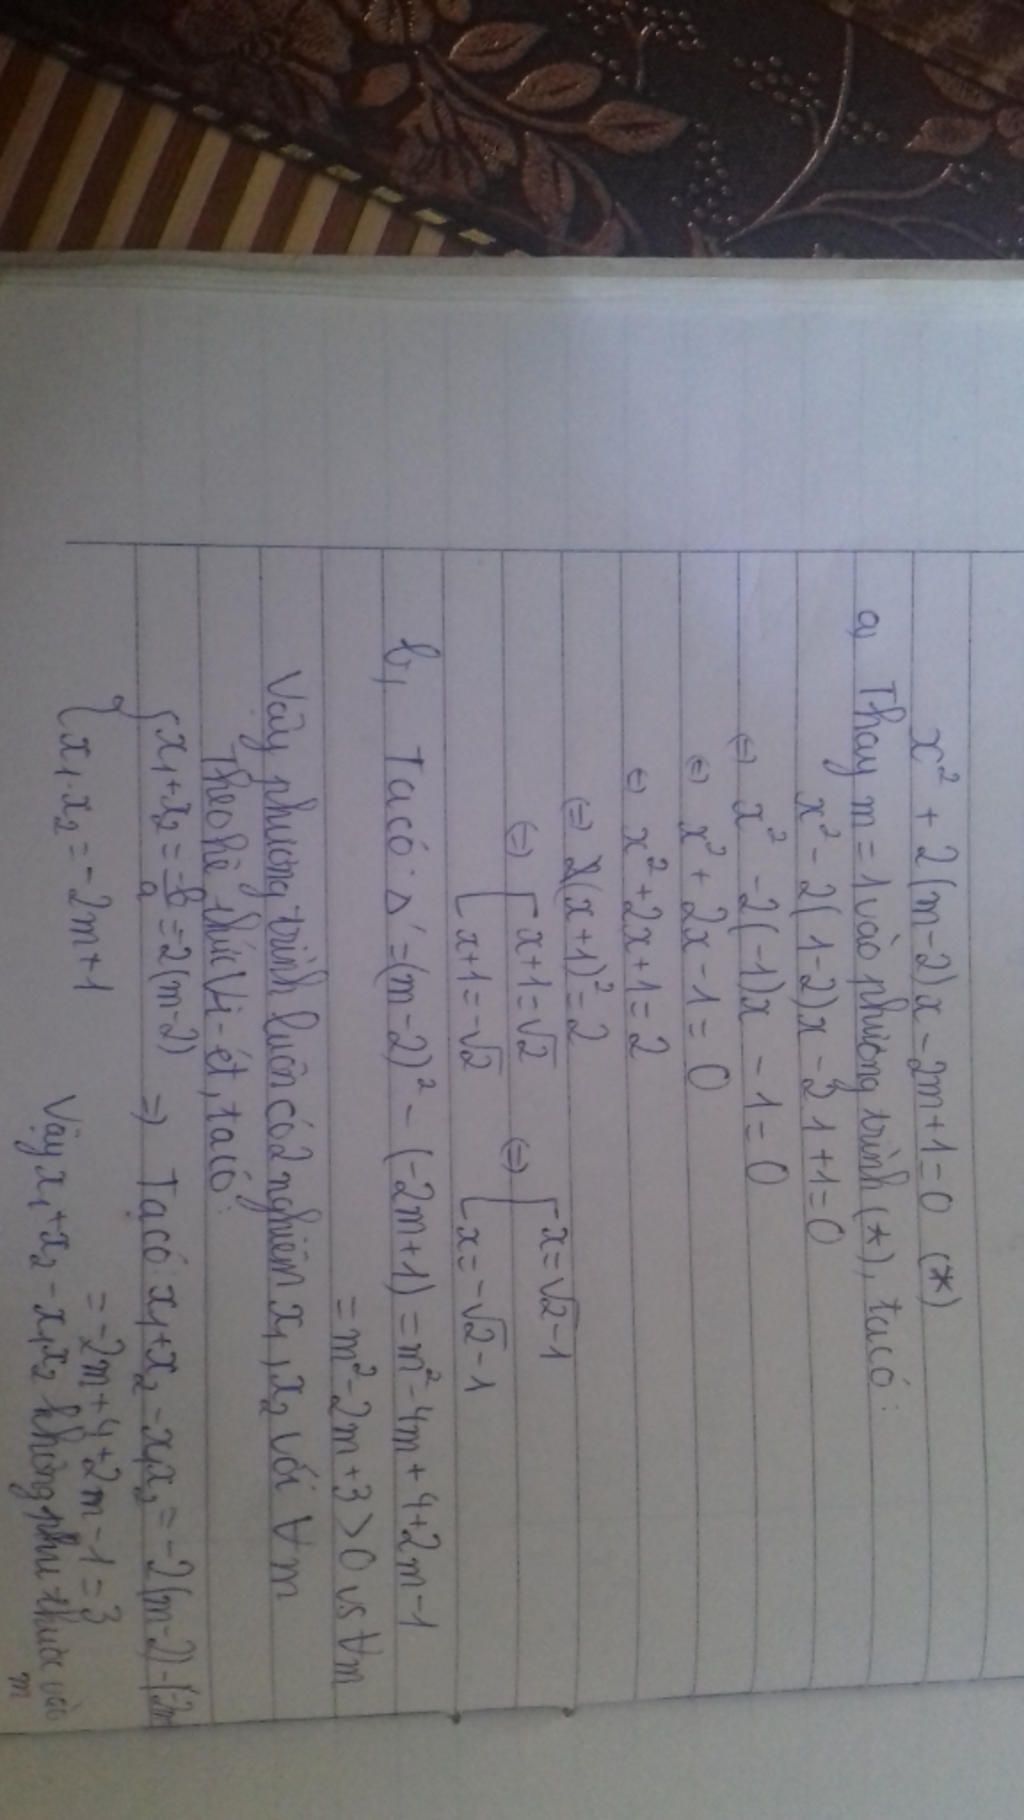 x² + 2(m-2)x - 2m+1=0 (*)
a, Thay m = 1 vào phương trình (*), ta có:
x² - 2(1-2)x - 2 1 +1=0
⇔ x² -2(-1)x - 1 = 0
⇔ x² + 2x - 1 = 0
⇔ x² +2x+1 = 2
⇔ (x+1)² = 2
⇔ [ x+1 = √2 ⇔ [ x = √2 - 1
[ x+1 = -√2 [ x = -√2 - 1
b, Ta có: Δ' = (m-2)² - (-2m+1) = m² - 4m + 4+2m-1
= m² - 2m + 3 > 0 vs ∀m
Vậy phương trình luôn có 2 nghiệm x₁, x₂ với ∀m
Theo hệ thức Vi-ét, ta có:
{ x₁+x₂ = -b/a = -2(m-2) ⇒ Ta có: x₁+x₂ - x₁x₂ = -2(m-2) - (-2m
{ x₁.x₂ = -2m+1 = -2m+4+2m-1 = 3
Vậy x₁+x₂ - x₁x₂ không phụ thuộc vào
m